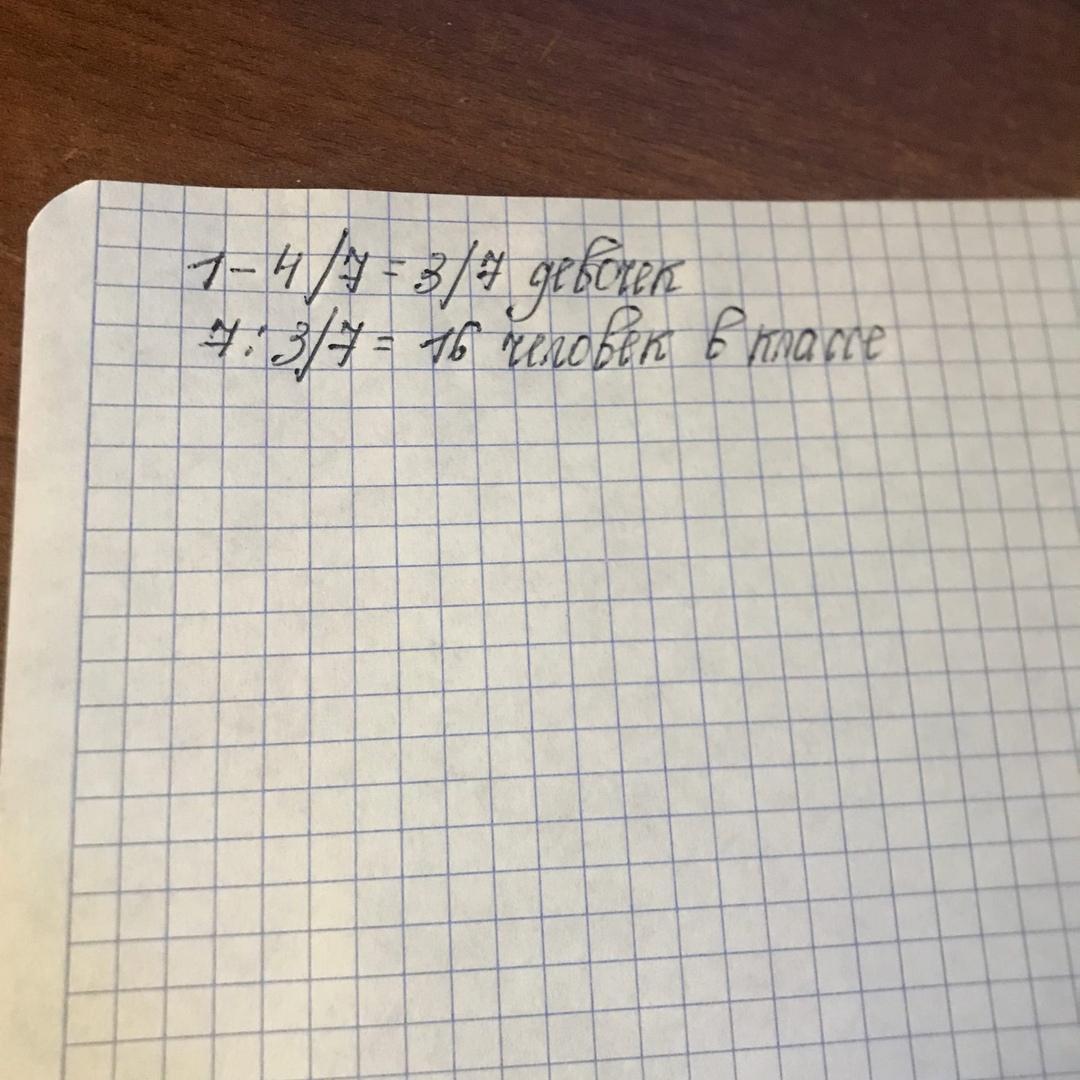 1 - 4/7 = 3/7 девочек
7 : 3/7 = 16 человек в классе